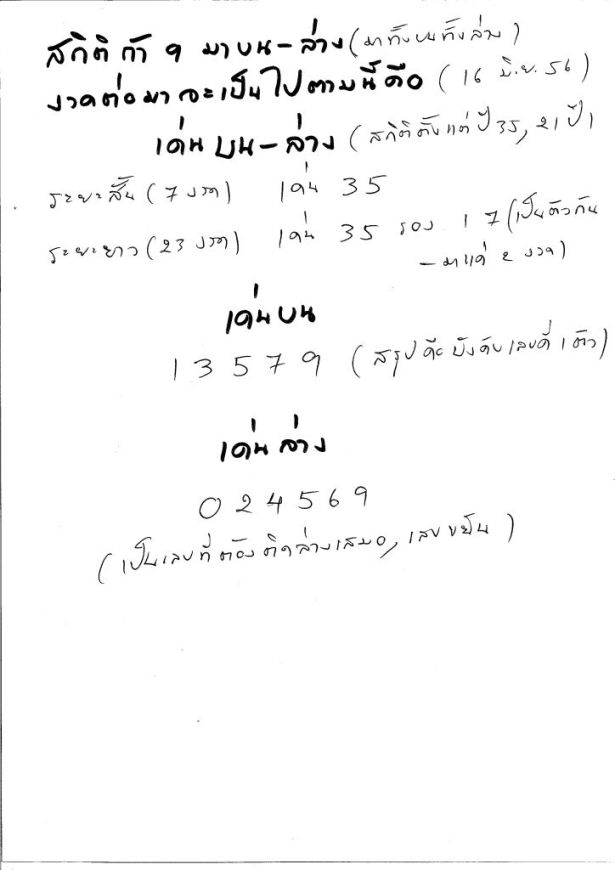 สถิติ ถ้า 9 มาบน-ล่าง (มาทั้งบนทั้งล่าง)
งวดต่อมาจะเป็นไปตามนี้คือ (16 มิ.ย. 56)
เด่นบน-ล่าง (สถิติตั้งแต่ปี 35, 21 ปี)
ระยะสั้น (7 งวด) เด่น 35
ระยะยาว (23 งวด) เด่น 35 รอง 17 (เป็นตัวกัน
- มาแค่ 2 งวด)
เด่นบน
1 3 5 7 9 (สรุปคือบังคับเลขคี่ 1 ตัว)
เด่นล่าง
0 2 4 5 6 9
(เป็นเลขที่ต้องติดล่างเสมอ, เลขขยัน)